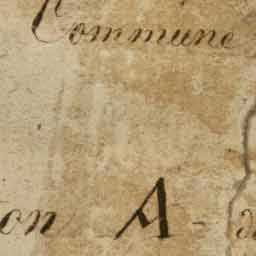 Commune
on A - d